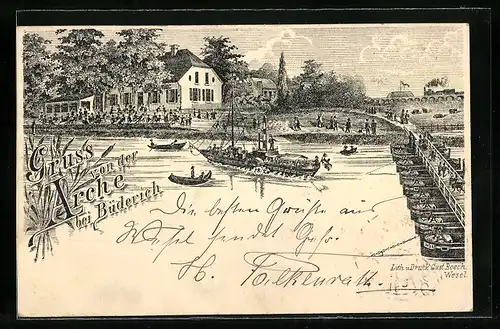 Gruss
von der
Arche
bei Büderich
Die besten Grüße aus
Wesel sendet
H. Falkenrath.
Lith. u. Druck Gust. Bosch.
Wesel.